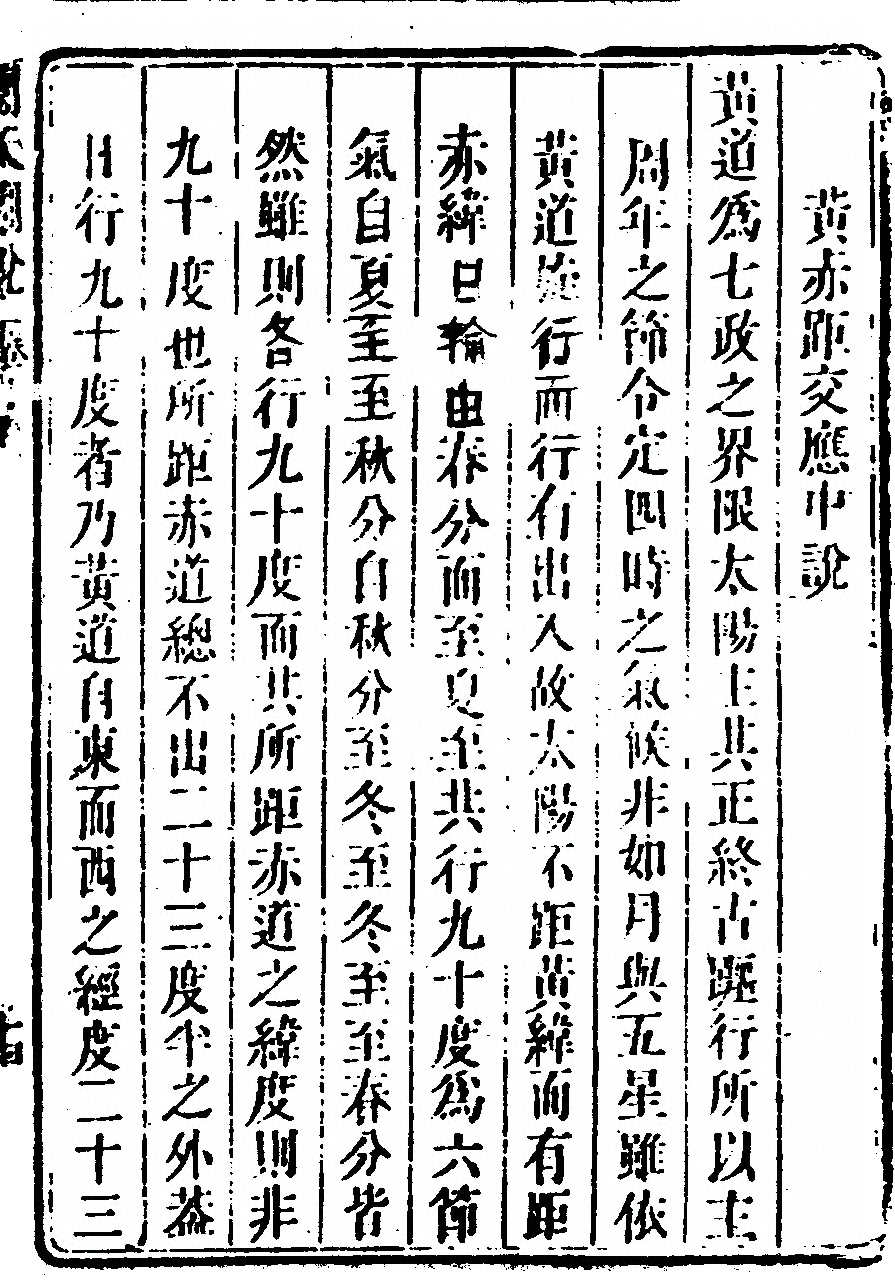 黃赤距交應中說
黃道爲七政之界限太陽主其正終古躔行所以主
周年之節令定四時之氣候非如月與五星雖依
黃道旋行而行有出入故太陽不距黃緯而有距
赤緯日輪由春分而至夏至共行九十度爲六節
氣自夏至至秋分自秋分至冬至冬至至春分皆
然雖則各行九十度而其所距赤道之緯度則非
九十度也所距赤道總不出二十三度半之外蓋
日行九十度者乃黃道自東而西之經度二十三